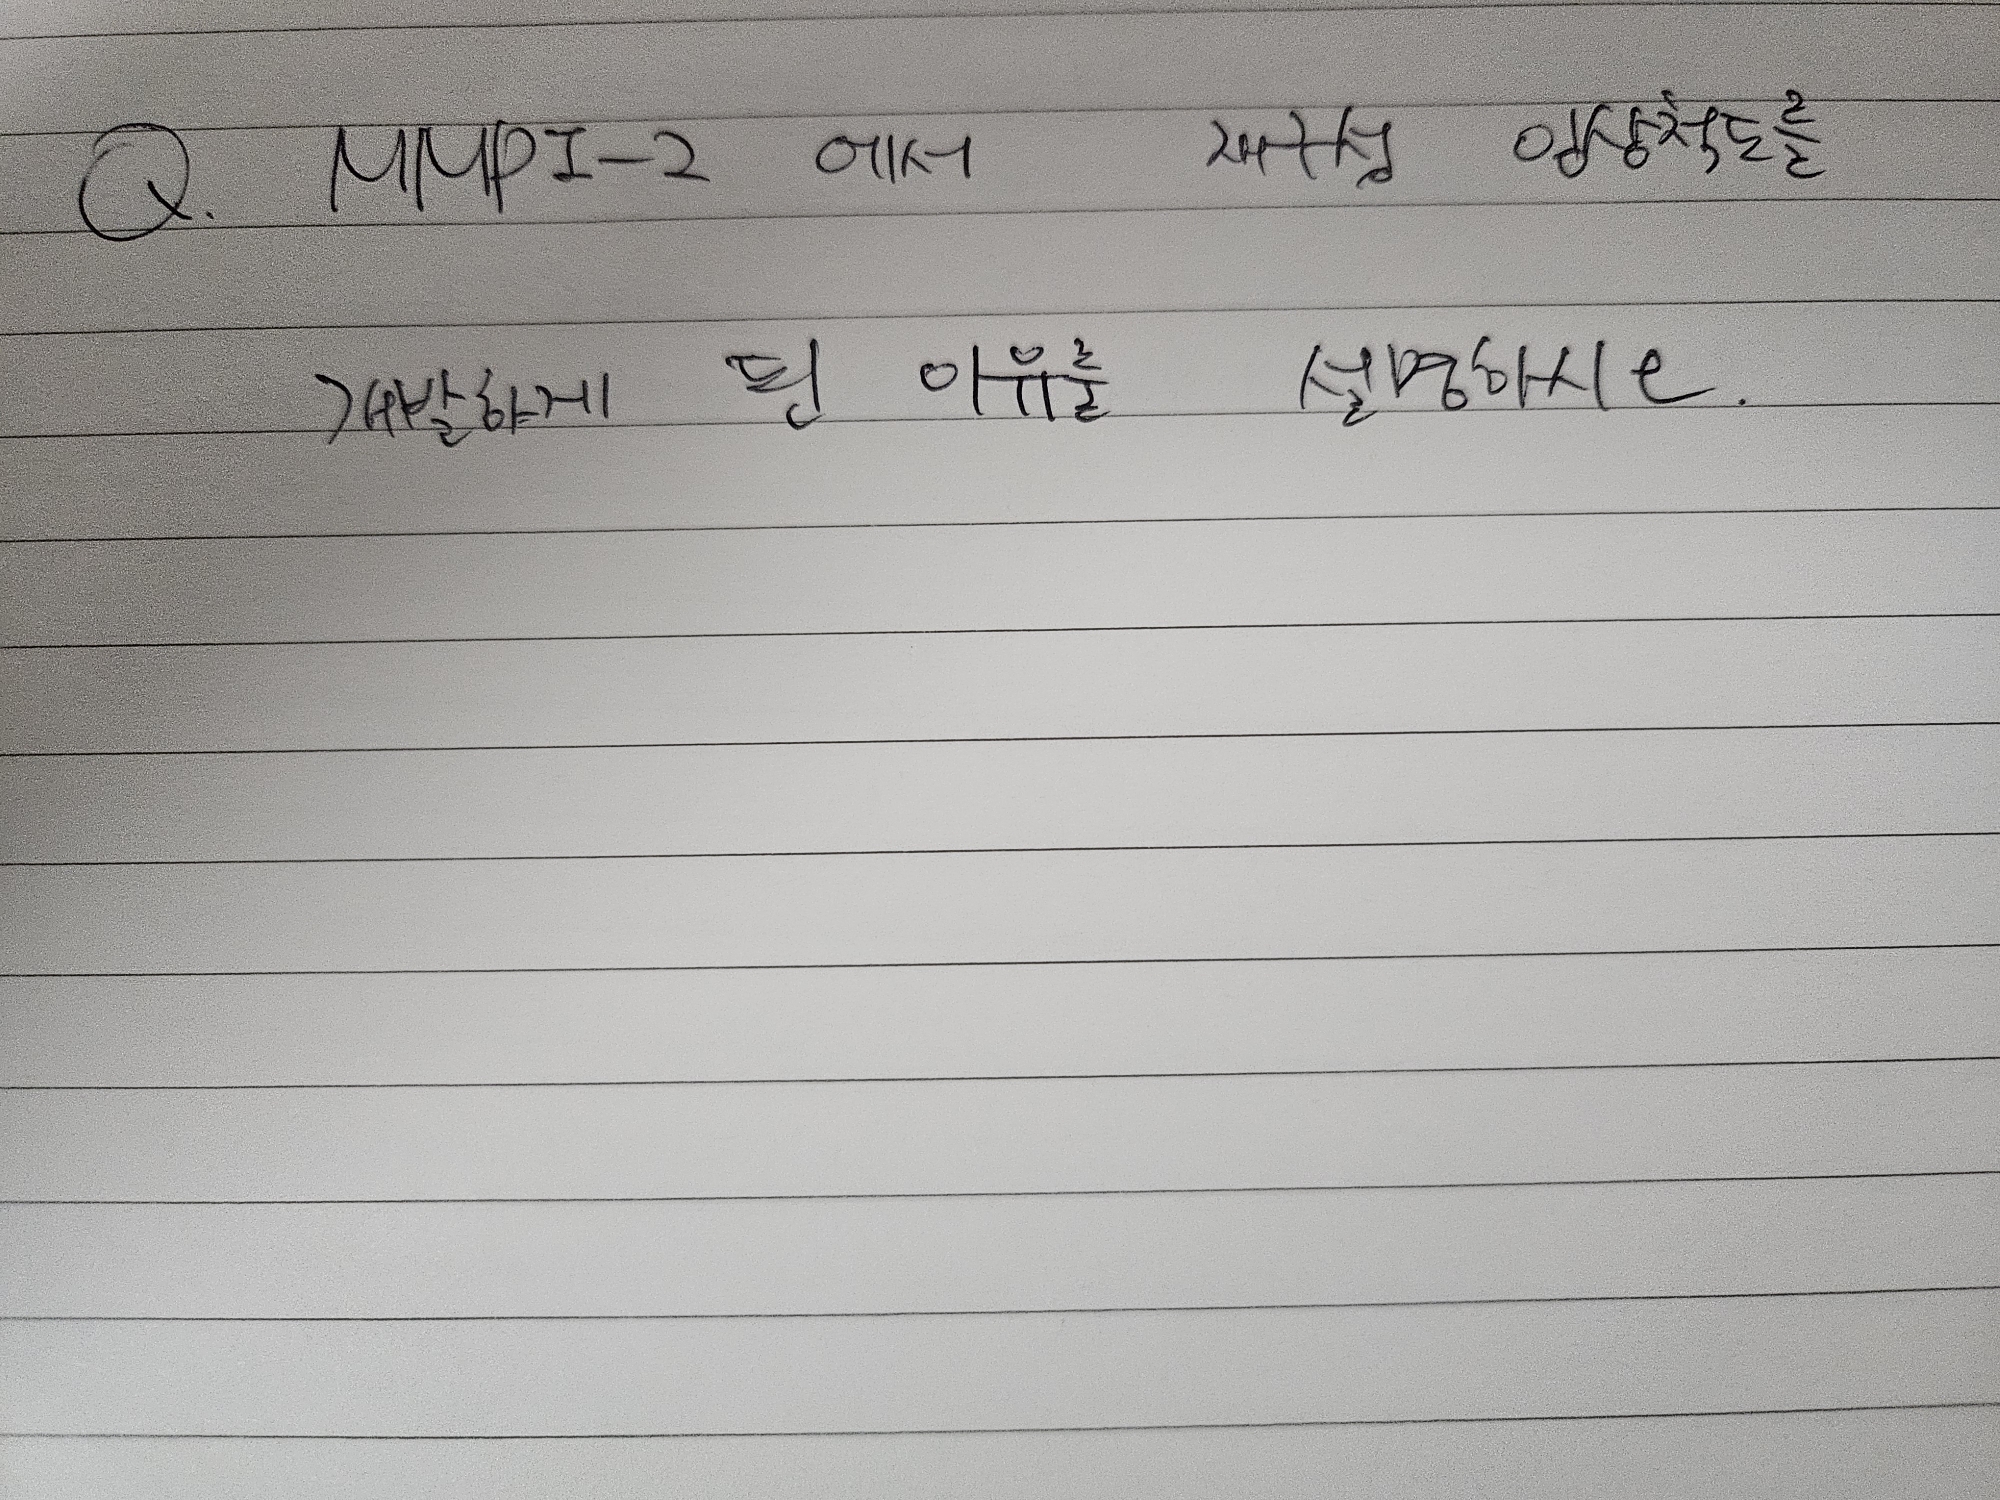 Q. MMPI-2 에서 재구성 임상척도를
개발하게 된 이유를 설명하시오.